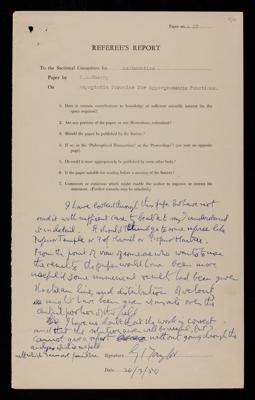 REFEREE'S REPORT
To the Sectional Committee for Mathematics
Paper by T.M. Cherry
On Asymptotic Formulae for Hypergeometric Functions.
1. Does it contain contributions to knowledge of sufficient scientific interest for the space required?
2. Are any portions of the paper, or any illustrations, redundant?
3. Should the paper be published by the Society?
4. If so, in the 'Philosophical Transactions' or the 'Proceedings'? (see note on opposite page).
5. Or could it more appropriately be published by some other body?
6. Is the paper suitable for reading before a meeting of the Society?
7. Comments or criticisms which might enable the author to improve or correct his statement. (Further remarks may be attached.)
I have looked through this paper but have not
read it with sufficient care to be able to say I understand
it in detail. I should send to some referee like
Temple or Prof
From the point of view of someone who wants to use
the results the paper would have been more
useful if some numerical result had been given
and distribution of velocity
might have been given at points over the
central portion of the field
I have no doubt that the work is correct
and that the will be useful. But I
cannot give a report without going through the
analysis
Signature G I Taylor
Date